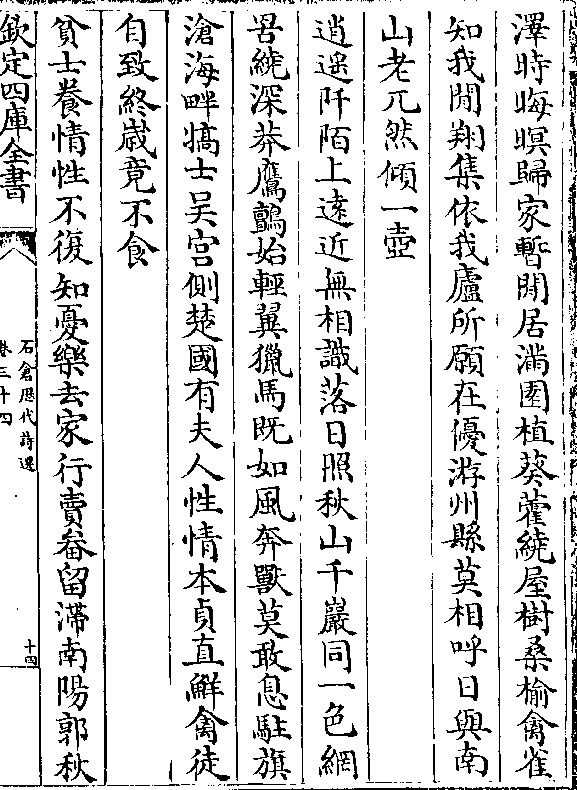 澤時晦暝歸家暫閒居滿園植葵藿繞屋樹桑榆禽雀
知我閒翔集依我廬所願在優游州縣莫相呼日與南
山老兀然傾一壺
逍遥阡陌上遠近無相識落日照秋山千巖同一色網
罟繞深莽鷹鸇始輕翼獵馬既如風奔獸莫敢息駐旗
滄海畔犒士吴宫側楚國有夫人性情本貞直鮮禽徒
自致終歳竟不食
貧士養情性不復知憂樂去家行賣畚留滯南陽郭秋
欽定四庫全書
石倉歴代詩選
卷三十四
十四